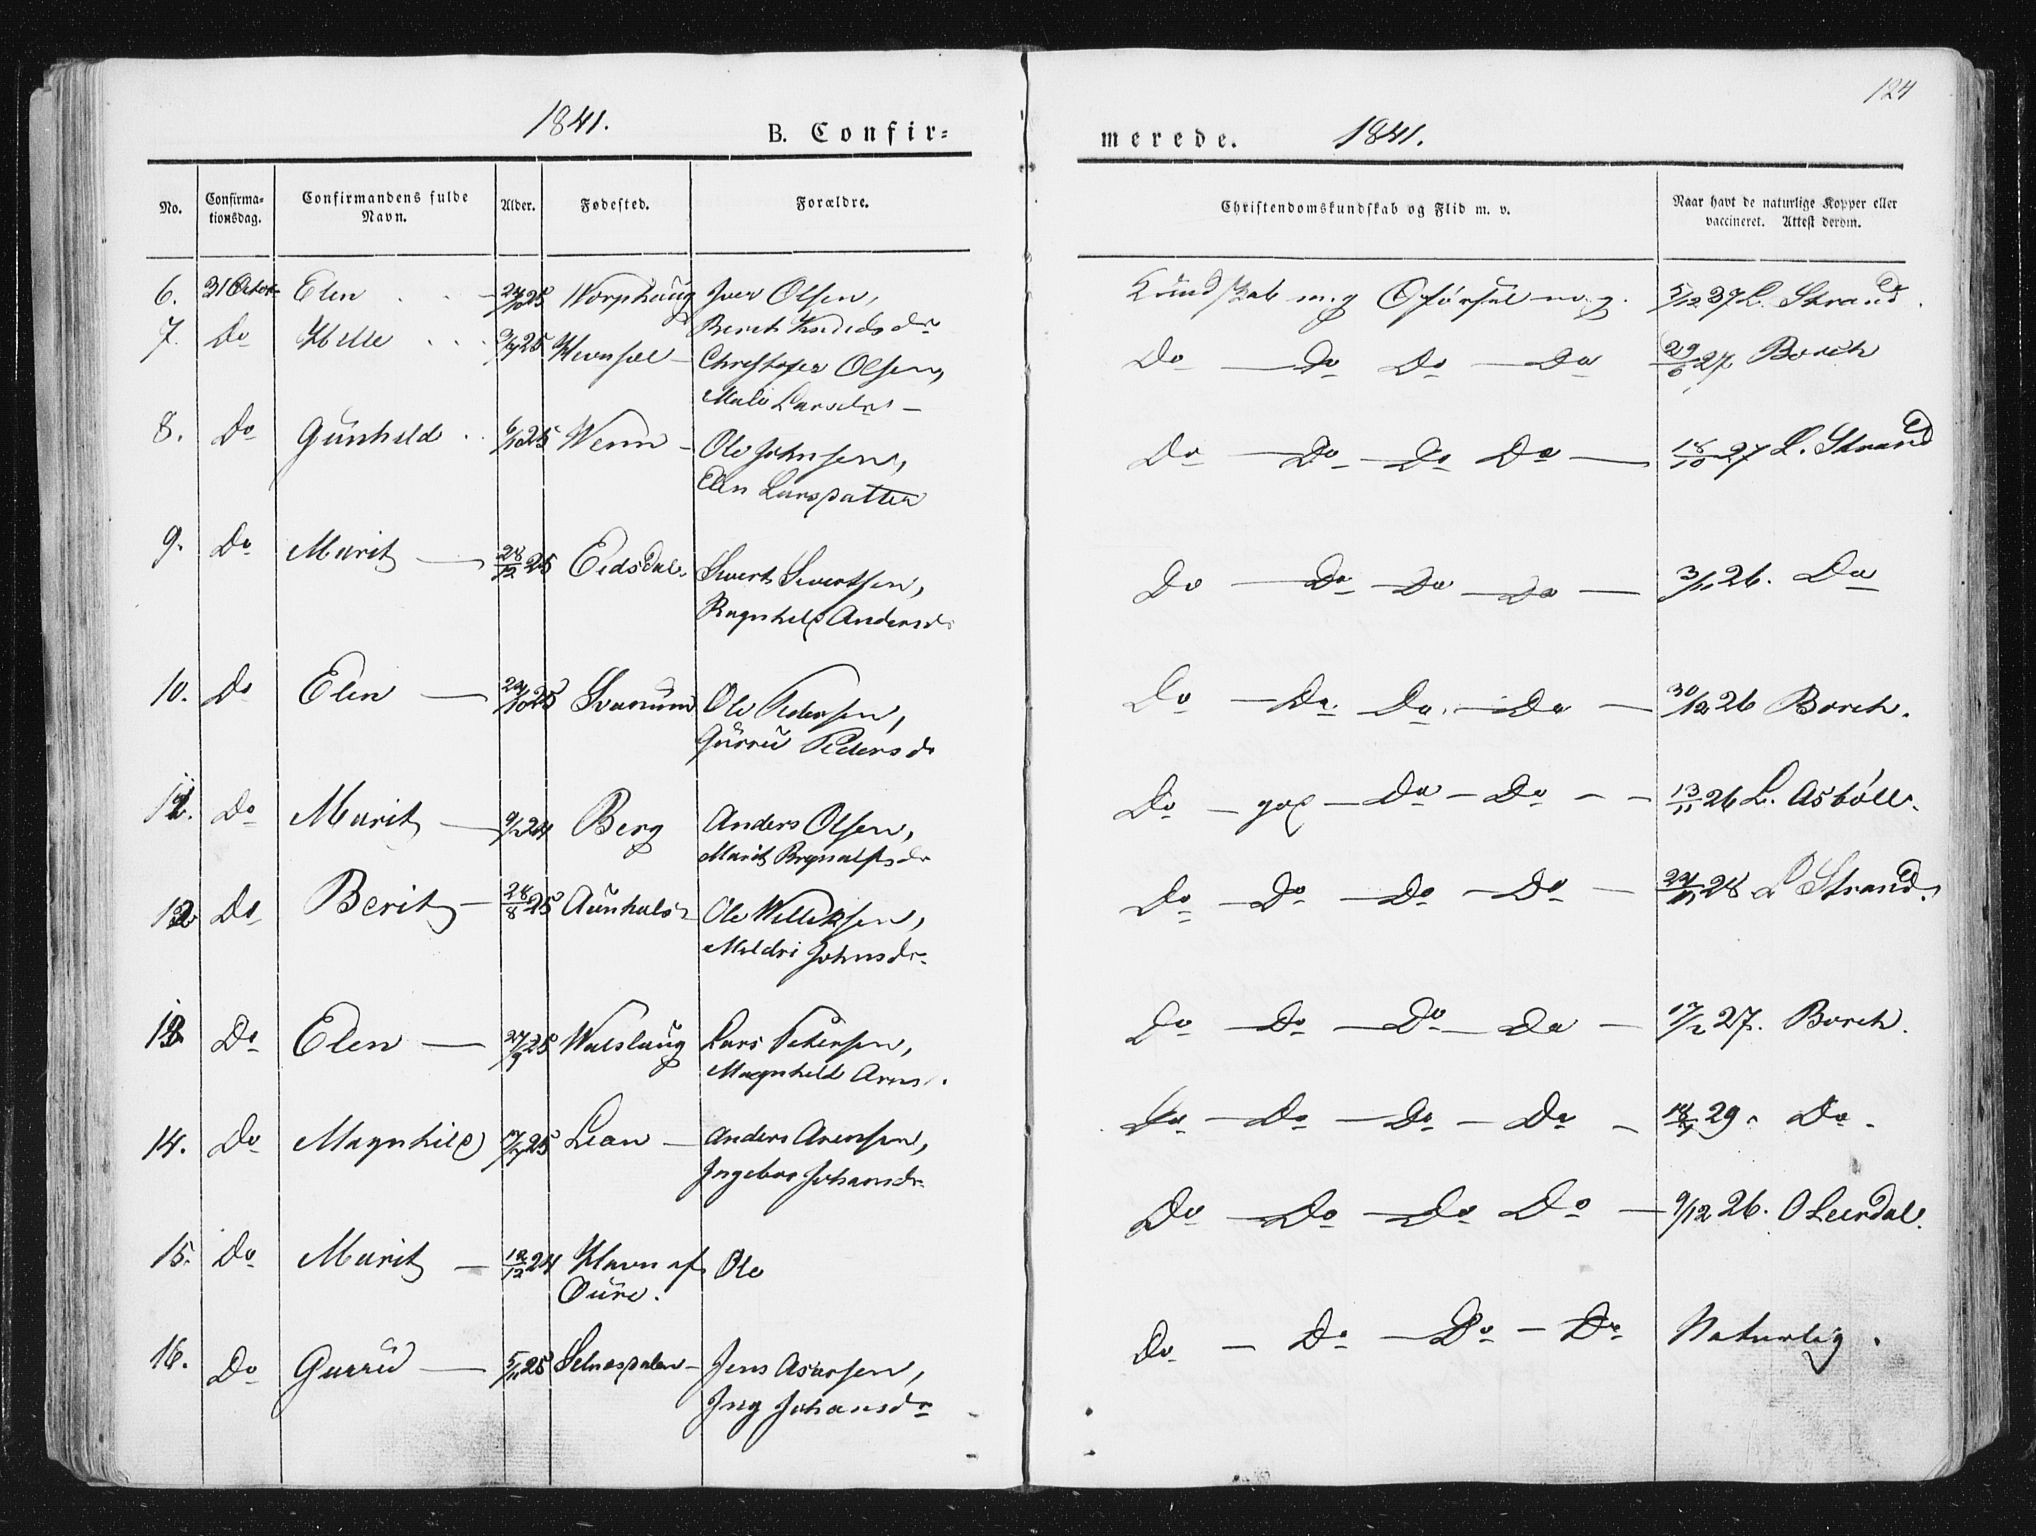 124
1841.
B. Confir=
merede.
1841.
No.
Confirma-
tionsdag.
Confirmandens fulde
Navn.
Alder.
Fødested.
Forældre.
Christendomskundskab og Flid m. v.
Naar havt de naturlige Kopper eller
vaccineret. Attest derom.
6. 31 Octob Elen 25 Worphaug Iver Olsen,
Berit
Kundskab m. g Opførsel m. g. 5/12 37 L. Strand.
7. Do 25 Christopher Olsen,
Mali Larsdr
Do Do Do Do 27 Borch
8. Do Gunhild 6/10 25 Wenn Ole Johnsen,
Elen Larsdatter
Do Do Do Do 18/10 27 L. Strand
9. Do Marit 28/12 25 Eidsdal Sivert Sivertsen,
Ragnhild Andersd
Do Do Do Do 26. Do
10. Do Elen 24/10 25 Svanum Ole Pedersen,
Gurru Pedersd
Do Do Do Do 30/12 26 Borch.
11. Do Marit 24 Berg Anders Olsen,
Marit
Do god Do Do 13/11 26 L. Asbøll.
12 Do Berit 28/8 25 Ole
Meldri Johnsdr
Do Do Do Do 28 L Strand.
13 Do Elen 27/9 25 Walslaug Lars Petersen,
Magnhild Arns
Do Do Do Do 27. Borch.
14. Do Magnhild 25 Lian Anders Arensen,
Ingebor Johansdr
Do Do Do Do 29. Do.
15. Do Marit 24 af Ole
Oure.
Do Do Do Do 9/12 26. O Leerdal.
16. Do Gurru 5/11 25 Jens Asarsen,
Ing Johansdr
Do Do Do Do Naturlig.